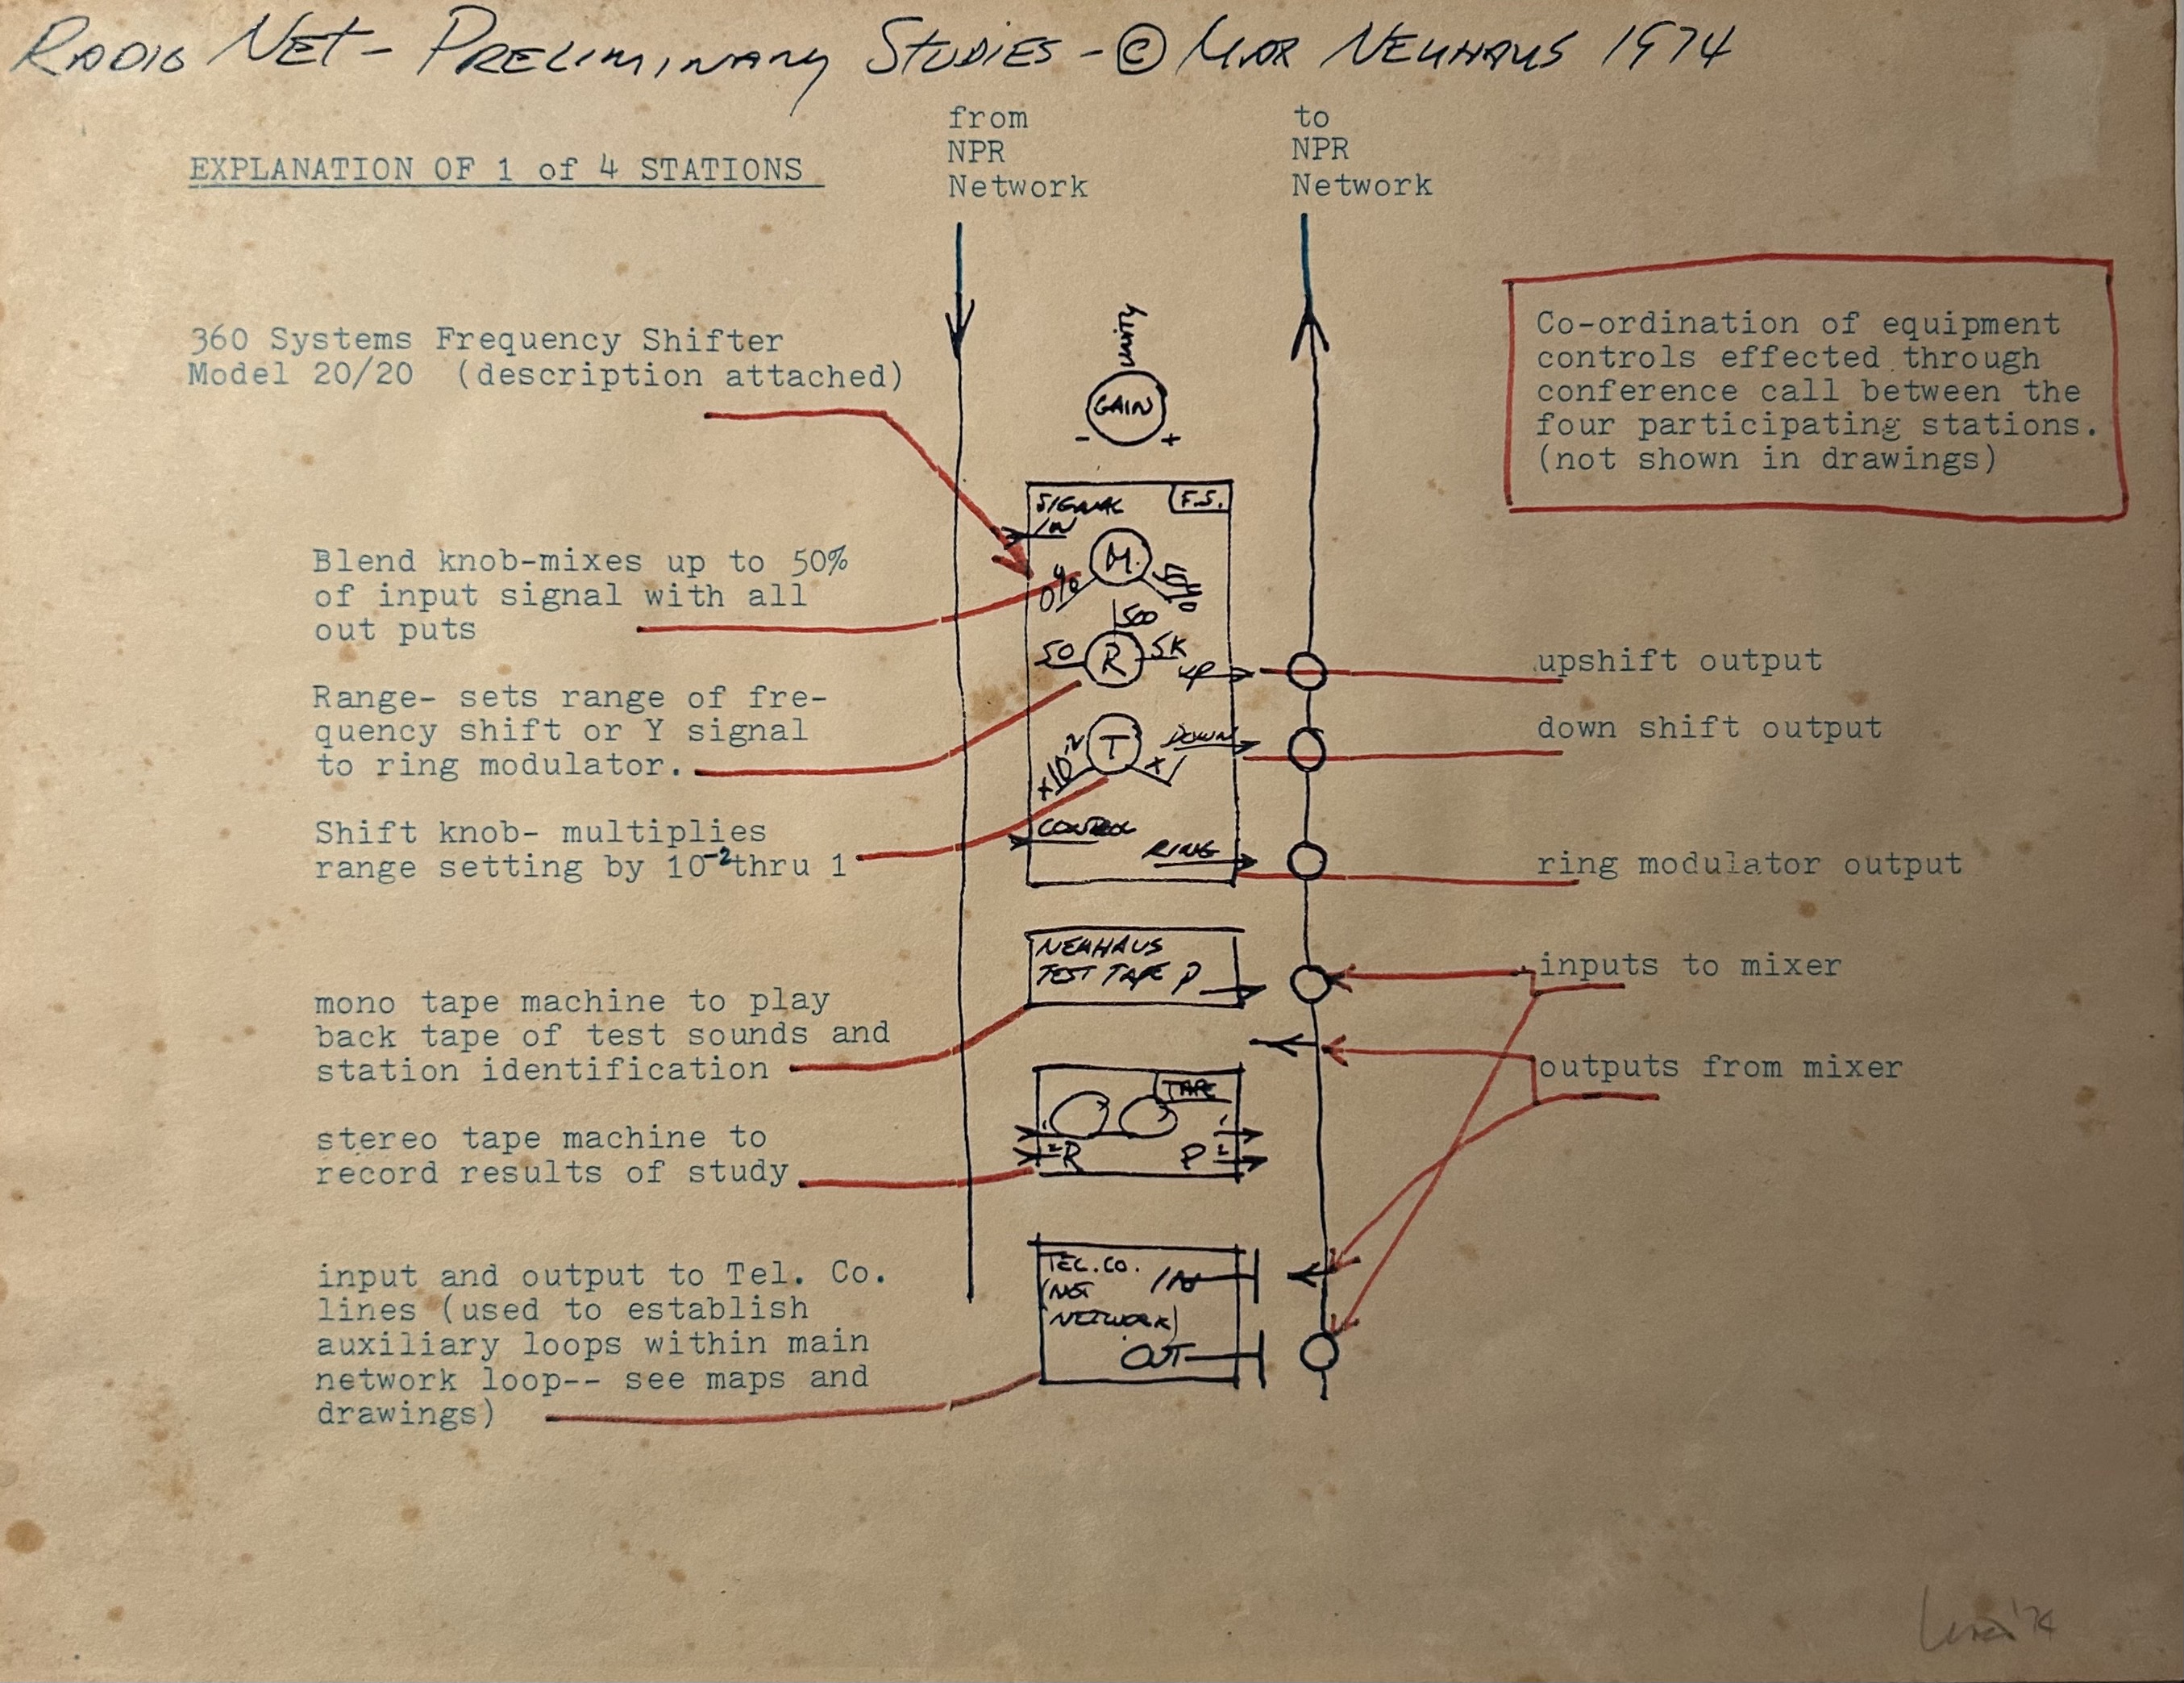 RADIO NET - PRELIMINARY STUDIES - © MAX NEUHAUS 1974
from
NPR
Network
to
NPR
Network
EXPLANATION OF 1 of 4 STATIONS
360 Systems Frequency Shifter
Model 20/20 (description attached)
Blend knob-mixes up to 50%
of input signal with all
out puts
Range- sets range of fre-
quency shift or Y signal
to ring modulator.
Shift knob- multiplies
range setting by 10⁻² thru 1
mono tape machine to play
back tape of test sounds and
station identification
stereo tape machine to
record results of study
input and output to Tel. Co.
lines (used to establish
auxiliary loops within main
network loop-- see maps and
drawings)
unity
GAIN
- +
SIGNAL F.S.
IN
M
0% 50%
500
50 R 5K
UP
T DOWN
X10⁻² X1
CONTROL
RING
NEUHAUS
TEST TAPE P
TAPE
1 1
2 R P 2
TEL.CO. IN
(NOT
NETWORK)
OUT
Co-ordination of equipment
controls effected through
conference call between the
four participating stations.
(not shown in drawings)
upshift output
down shift output
ring modulator output
inputs to mixer
outputs from mixer